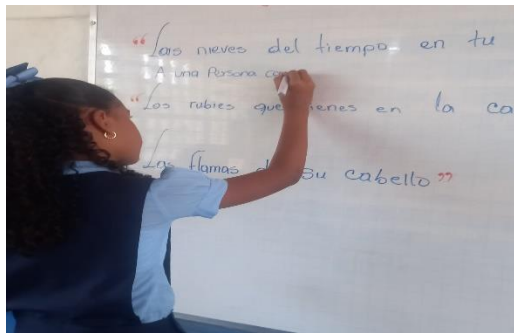 “Las nieves del tiempo en tu
A una Persona co
“Los rubíes que tienes en la ca
Las flamas de su cabello”